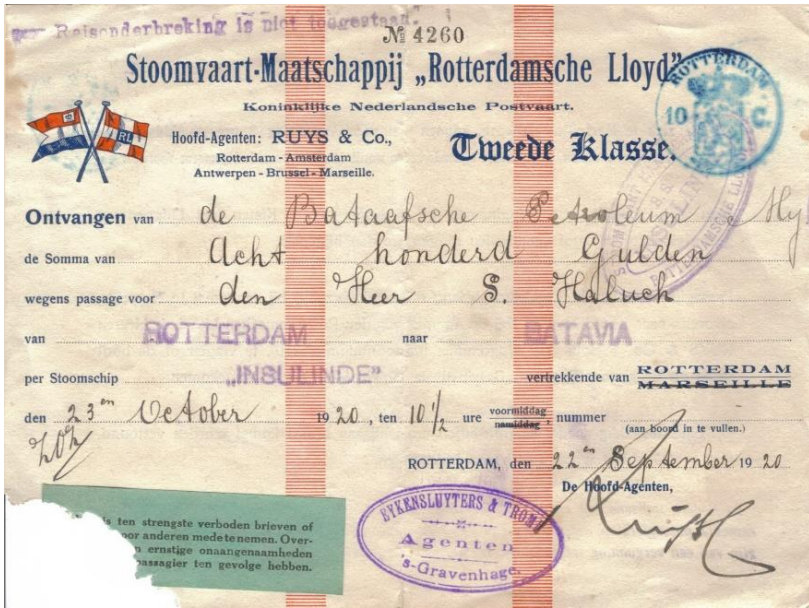 Reisonderbreking is niet toegestaan.
No 4260
Stoomvaart-Maatschappij „Rotterdamsche Lloyd”
Koninklijke Nederlandsche Postvaart.
Hoofd-Agenten: RUYS & Co.,
Rotterdam - Amsterdam
Antwerpen - Brussel - Marseille.
Tweede Klasse.
ROTTERDAM
10 C.
RL
Ontvangen van de Bataafsche Petroleum Mij
de Somma van Acht honderd Gulden
wegens passage voor den Heer S. Haluch
van ROTTERDAM naar BATAVIA
per Stoomschip „INSULINDE” vertrekkende van ROTTERDAM
MARSEILLE
den 23en October 1920, ten 10 1/2 ure voormiddag, nummer
namiddag
(aan boord in te vullen.)
ROTTERDAM, den 22en September 1920
De Hoofd-Agenten,
EYKENSLUYTERS & TROMP
Agenten
's-Gravenhage.
ten strengste verboden brieven of
voor anderen mede te nemen. Over-
ernstige onaangenaamheden
passagier ten gevolge hebben.